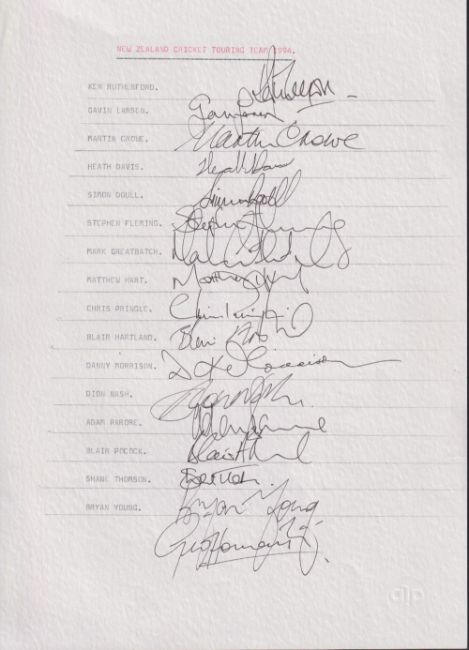 NEW ZEALAND CRICKET TOURING TEAM 1994.
KEN RUTHERFORD.
GAVIN LARSEN.
MARTIN CROWE. Martin Crowe
HEATH DAVIS. Heath Davis
SIMON DOULL. Simon Doull
STEPHEN FLEMING. Stephen Fleming
MARK GREATBATCH.
MATTHEW HART. Matthew Hart
CHRIS PRINGLE. Chris Pringle
BLAIR HARTLAND.
DANNY MORRISON. D K Morrison
DION NASH.
ADAM PARORE.
BLAIR POCOCK.
SHANE THOMSON.
BRYAN YOUNG. Bryan Young